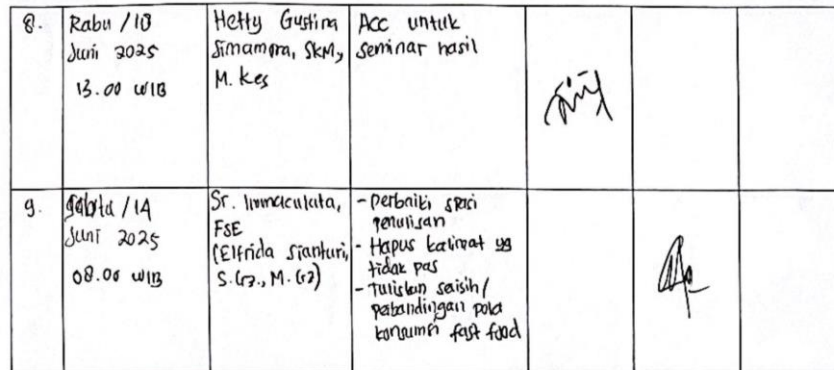 8.
Rabu / 18
Juni 2025
13.00 WIB
Hetty Gustina
Simamora, SKM,
M. Kes
Acc untuk
seminar hasil
9.
Sabtu / 14
Juni 2025
08.00 WIB
Sr. Immaculata,
FSE
(Elfrida Sianturi,
S.Gz., M.Gz)
- Perbaiki spasi
penulisan
- Hapus kalimat yg
tidak pas
- Tuliskan selisih /
perbandingan pola
konsumsi fast food